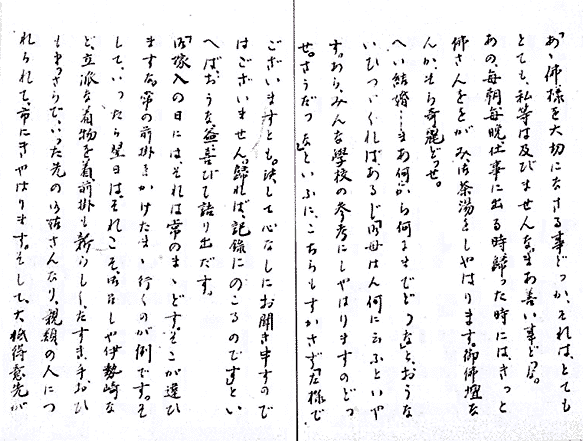 あゝ佛様を大切になさる事どつか、それとても
とても、私等は及びませんなまあ善い事どつせ。
あの、毎朝毎晩仕事に出る時歸つた時にはきつと
佛さんををがみお茶湯をしやはります。御佛壇な
んか、そら奇麗どつせ。
へい結婚…まあ何から何までどうなと、おうな
いひつゞくればあるじ「お母はん何に云ふといや
す。あら、みんな學校の参考にしやはりますのどつ
せ。さうだつなといふに、こちらもすかさず「左様で
ございますとも。決して心なしにお聞き申すので
はございません。歸れば、記録にのこるのですとい
へば、おうな益喜びて語り出だす。
「お嫁入の日には、それは常のまゝどす。そこが違ひ
ますな。常の前掛をかけたまゝ行くのが例です。そ
して、いつたら翌日は、それこそお召しや伊勢崎な
ど、立派な着物を着前掛も新らしく、たすき、手おひ
もまつさらで、いつた先のお姑さんなり、親類の人につ
れられて、市にきやはります。そして、大抵得意先が